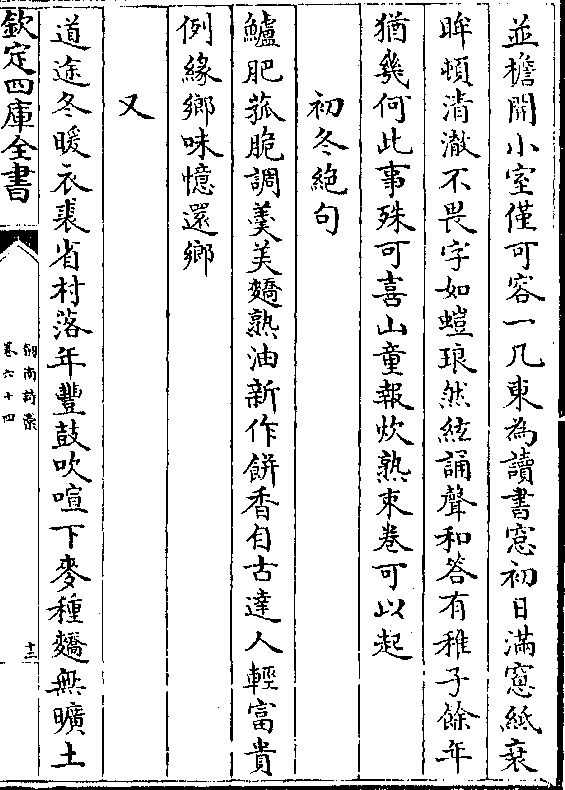 並檐開小室僅可容一几東為讀書窓初日滿窓紙衰
眸頓清澈不畏字如螘琅然絃誦聲和答有稚子餘年
猶幾何此事殊可喜山童報炊熟束卷可以起
初冬絶句
鱸肥菰脆調羹美麪熟油新作餅香自古達人輕富貴
例緣鄉味憶還鄉
又
道途冬暖衣裘省村落年豐鼓吹喧下麥種麪無曠土
欽定四庫全書
劒南詩槀
卷六十四
十三